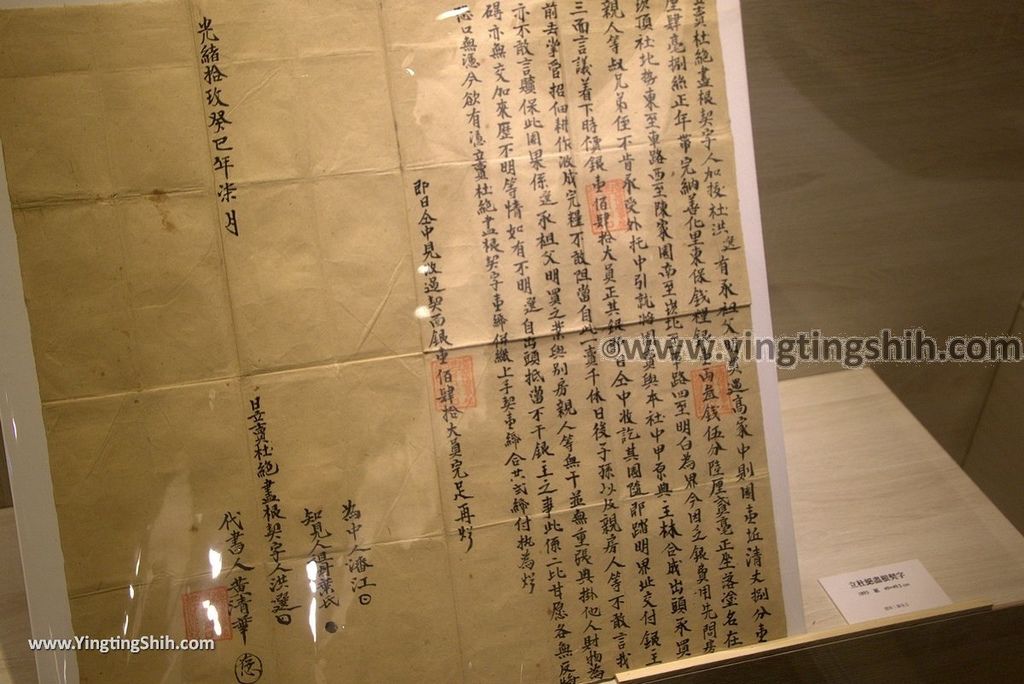 立賣杜絕盡根契字人加拔社洪選有承祖父明買過高家中則園壹坵清丈捌分壹
厘肆毫捌絲正年帶完納善化里東保錢糧銀 兩叁錢伍分陸厘叁毫正坐落塗名在
頂社北勢東至車路西至陳家園南至 北至車路四至明白為界今因乏銀費用先問房
親人等叔兄弟侄不肯承受外托中引就將園賣與本社中甲原典主林合成出頭承買
三面言議着下時價銀壹佰肆拾大員正其銀即日仝中收訖其園隨即踏明界址交付銀主
前去掌管招佃耕作收成完糧不敢阻當自此一賣千休日後子孫以及親房人等不敢言找
亦不敢言贖保此園果係選承祖父明買之業與別房親人等無干並無重張典掛他人財物為
碍亦無交加來歷不明等情如有不明選自出頭抵當不干銀主之事此係二比甘愿各無反悔
恐口無憑今欲有憑立賣杜絕盡根契字壹紙併繳上手契壹紙合共弍紙付執為炤
即日仝中見收過契面銀壹佰肆拾大員完足再炤
為中人潘江
知見人 葉氏
光緒拾玖癸巳年柒月 日立賣杜絕盡根契字人洪選
代書人黃清華
©www.yingtingshih.com
立杜絕盡根契字
http://www.YingtingShih.com